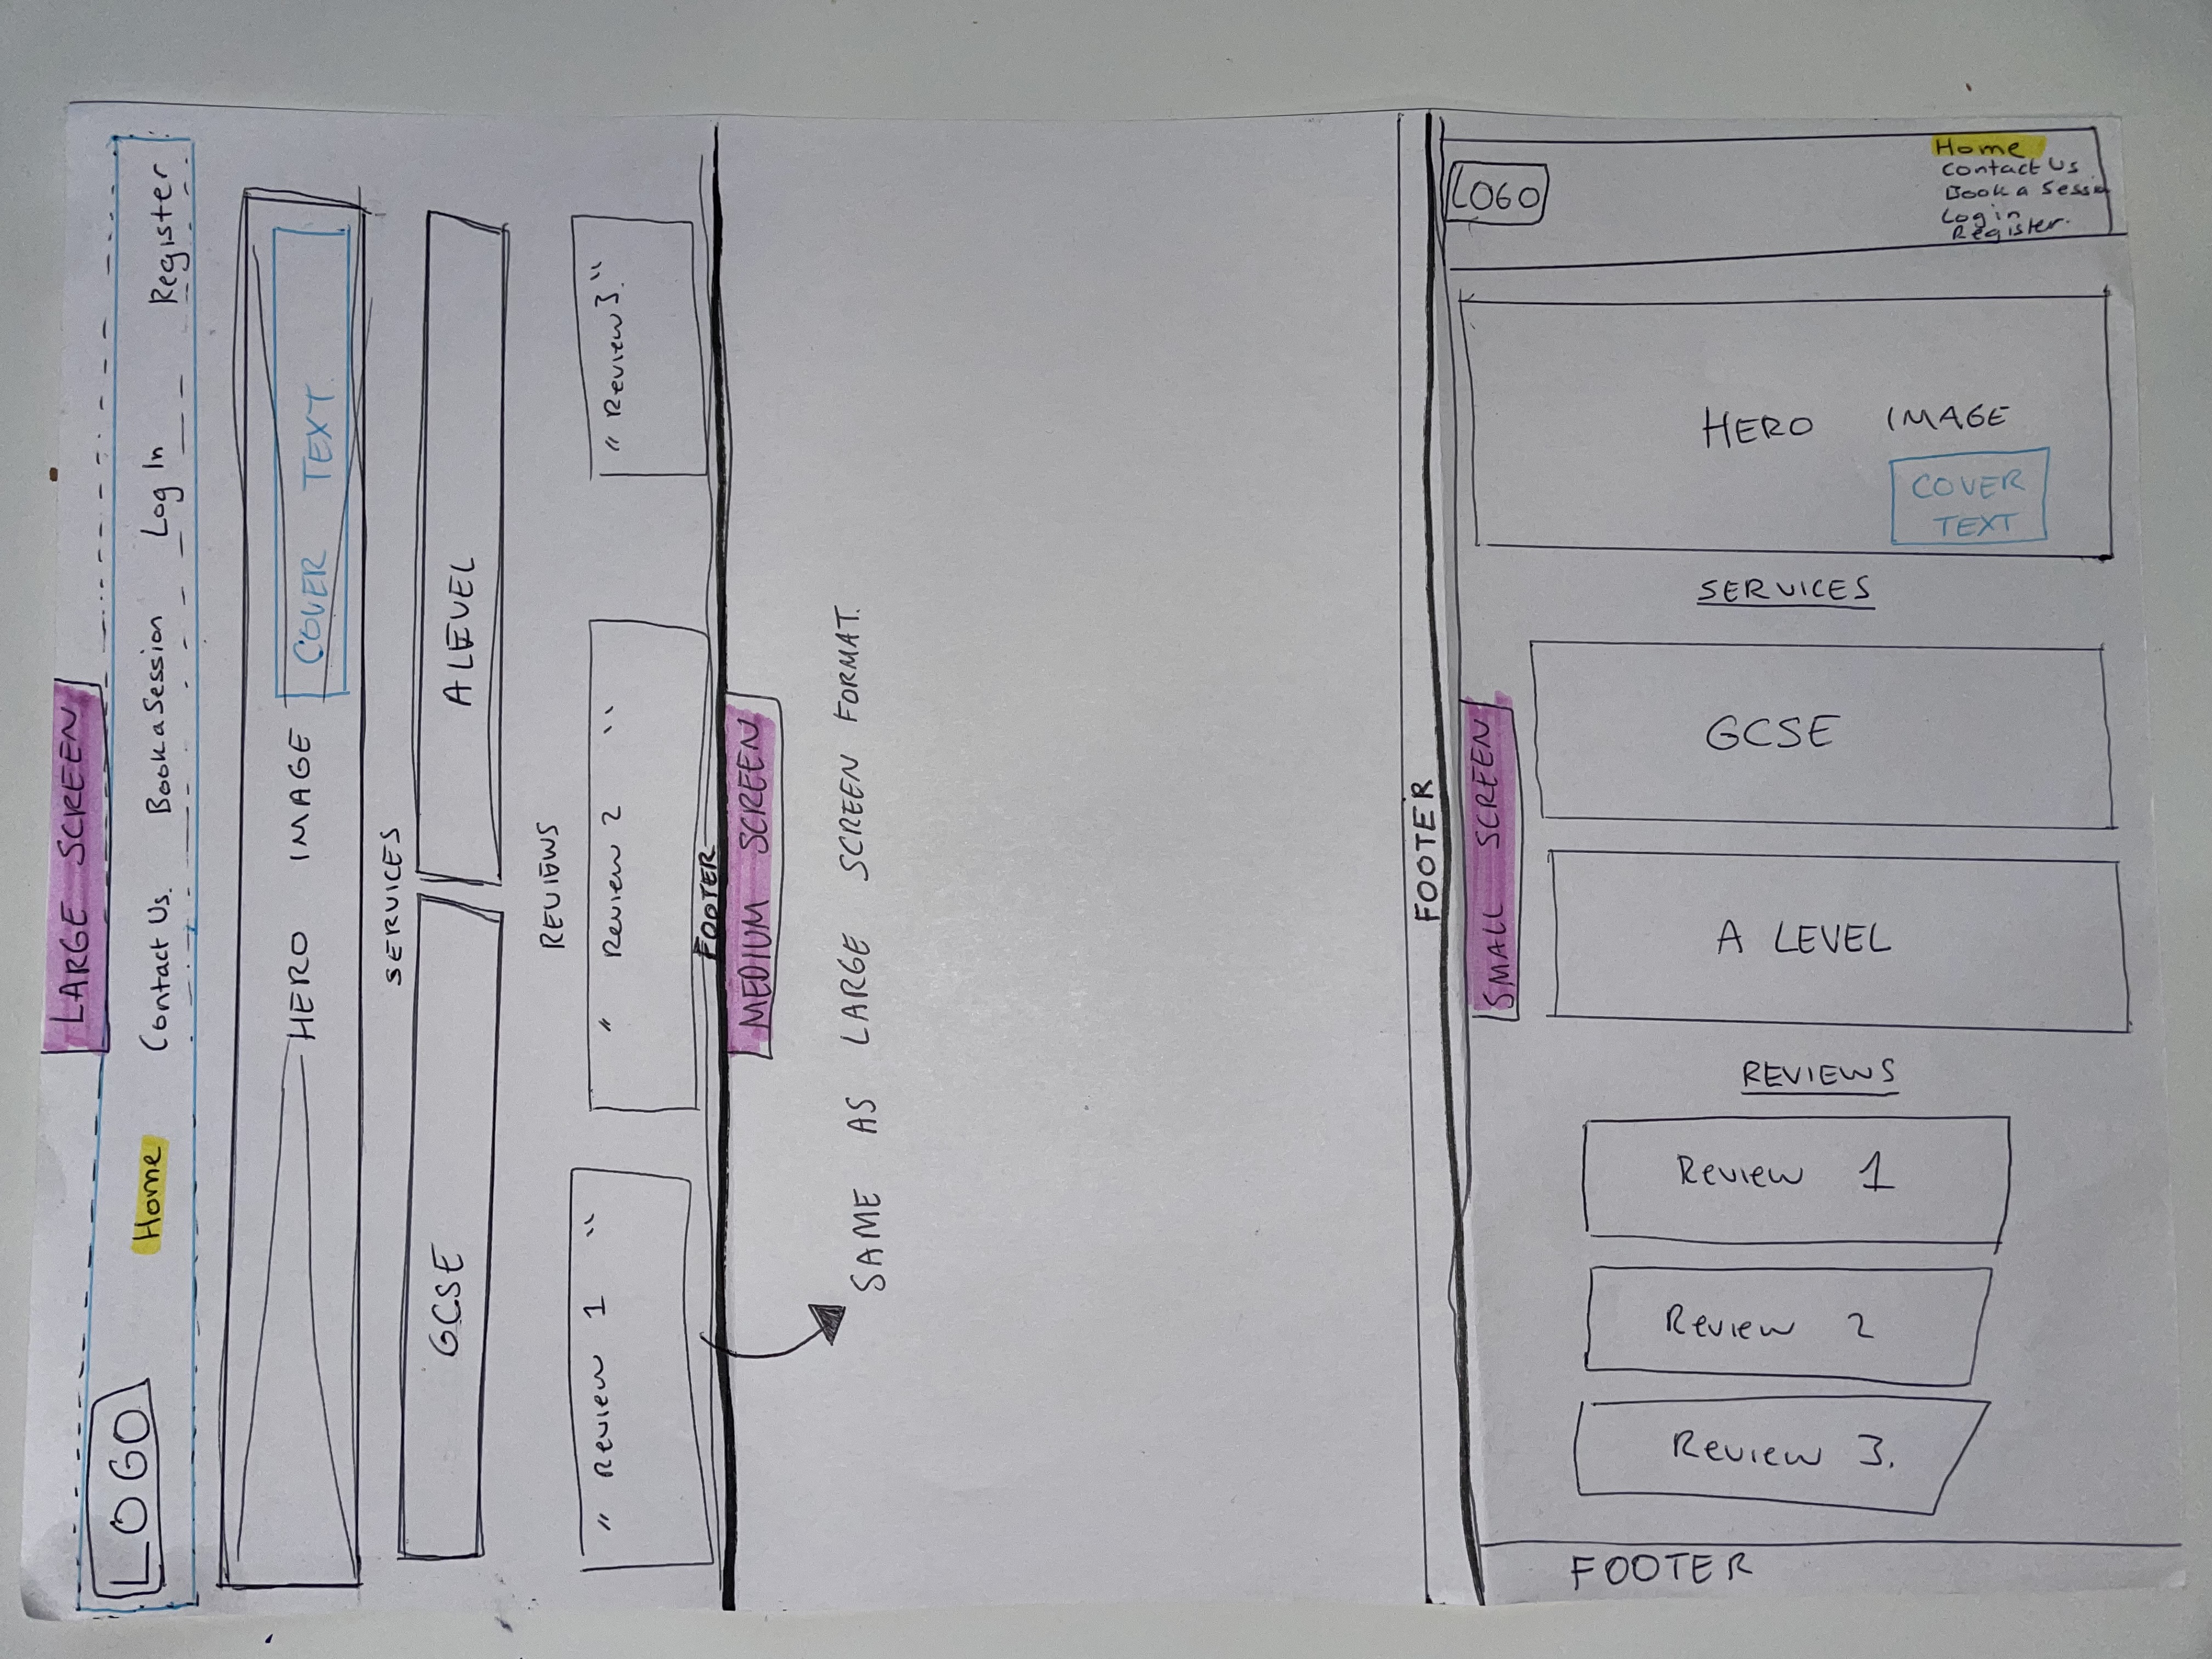 LARGE SCREEN
LOGO
Home Contact Us. Book a Session Log In Register
HERO IMAGE COVER TEXT
SERVICES
GCSE A LEVEL
REVIEWS
" Review 1 " " Review 2 " " Review 3. "
FOOTER
MEDIUM SCREEN
SAME AS LARGE SCREEN FORMAT.
FOOTER
SMALL SCREEN
LOGO
Home
Contact Us
Book a Sessio
Log in
Register.
HERO IMAGE
COVER
TEXT
SERVICES
GCSE
A LEVEL
REVIEWS
Review 1
Review 2
Review 3.
FOOTER